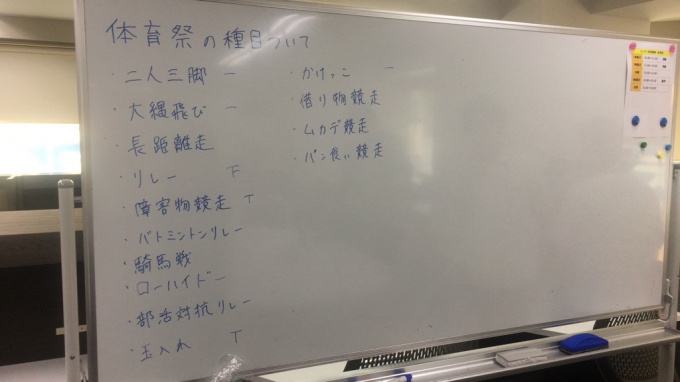 体育祭の種目ついて
・二人三脚 一
・大縄飛び 一
・長距離走
・リレー 下
・障害物競走 T
・バトミントンリレー
・騎馬戦
・ローハイドー
・部活対抗リレー
・玉入れ T
・かけっこ 一
・借り物競走
・ムカデ競走
・パン食い競走